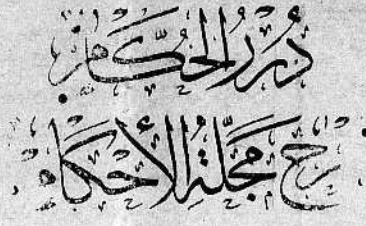 دُرَرُ الْحُكَّامِ
شَرْحُ مَجَلَّةِ الْأَحْكَامِ